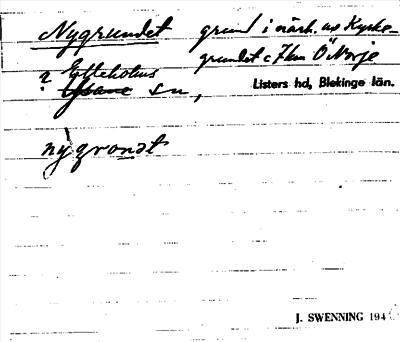 Nygrundet grund i närh. av Kyrko-
grundet c 7 km Ö Norje
? Elleholms
Ysane sn, Listers hd, Blekinge län.
nỳgrondt
J. SWENNING 194